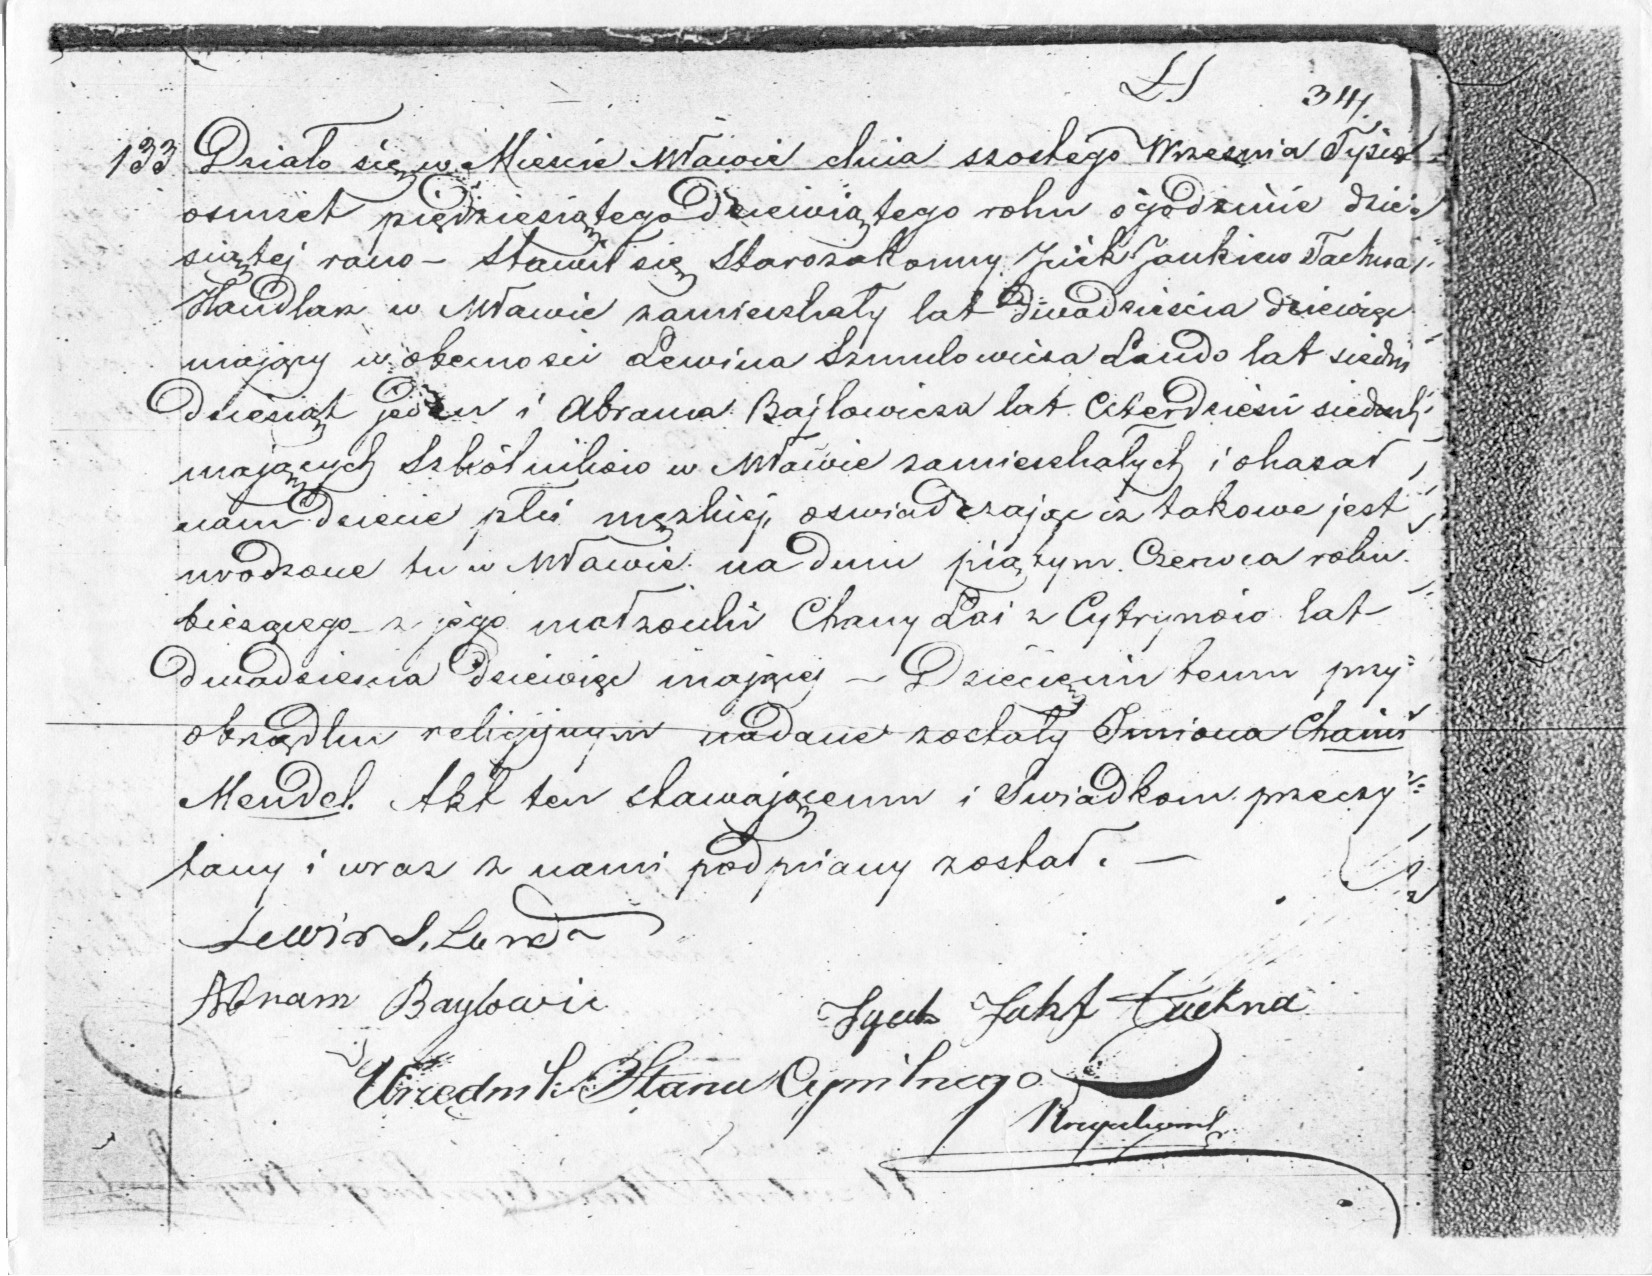 34
133 Działo się w Mieście Mławie dnia szostego Września Tysiąc
osmset pięćdziesiątego dziewiątego roku o godzinie dzie=
siątej rano – Stawił się Starozakonny Jankiew Tachna
Handlarz w Mławie zamieszkały lat dwadzieścia dziewięć
mający w obecności Lewina Szmulowicza Lando lat siedm
dziesiąt jeden i Abrama Bajlowicza lat Czterdzieści siedm
mających Szkólników w Mławie zamieszkałych i okazał
nam dziecie płci męzkiej, oswiadczając iż takowe jest
urodzone tu w Mławie na dniu piątym Czerwca roku
bieżącego z jego małżonki Chany Łai z Cytrynów lat
dwadzieścia dziewięć mającej – Dziecięciu temu przy
obrządku religijnym nadane zostały Imiona Chaim
Mendel. Akt ten stawającemu i Swiadkom przeczy=
tany i wraz z nami podpisany został. –
Lewin S. Lando
Abram Baylowic
Tachna
Urzednik Stanu Cywilnego